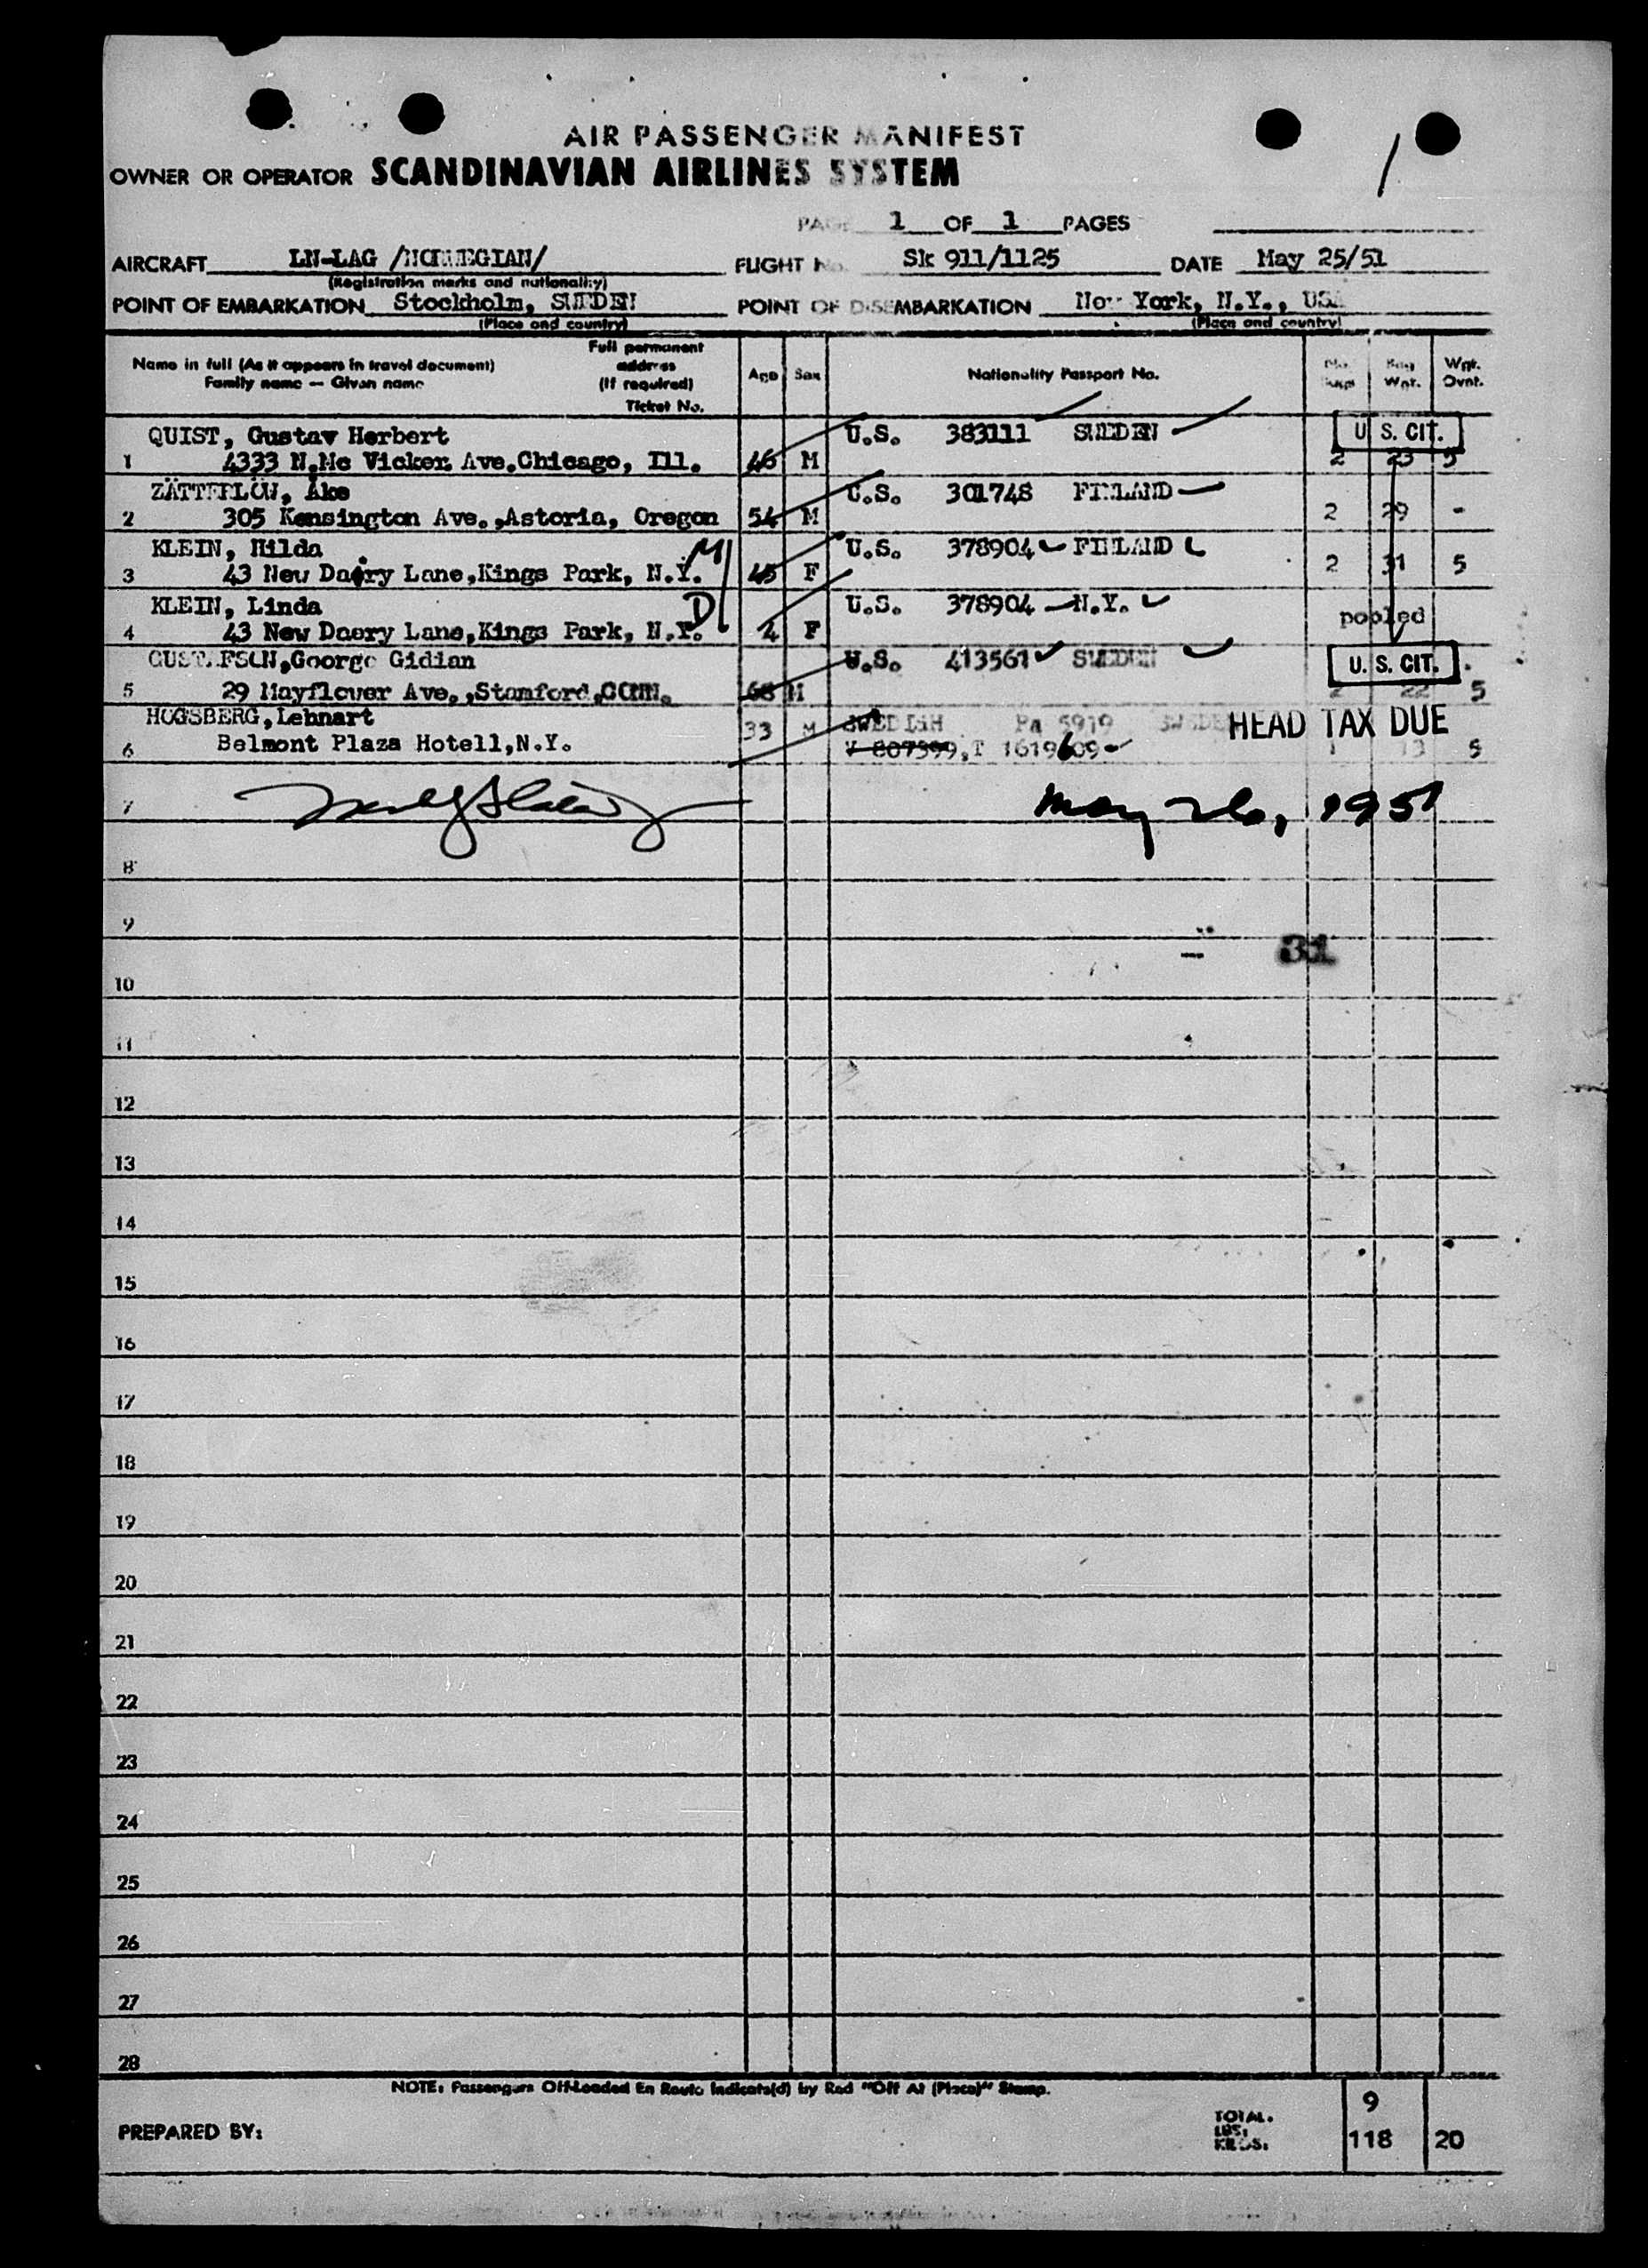 AIR PASSENGER MANIFEST
OWNER OR OPERATOR SCANDINAVIAN AIRLINES SYSTEM
PAGE 1 OF 1 PAGES
AIRCRAFT LN-LAG /NORWEGIAN/ FLIGHT No. Sk 911/1125 DATE May 25/51
(Registration marks and nationality)
POINT OF EMBARKATION Stockholm, SWEDEN POINT OF DISEMBARKATION New York, N.Y., USA
(Place and country) (Place and country)
Name in full (As it appears in travel document) Family name — Given name
Full permanent address (If required) Ticket No.
Age Sex Nationality Passport No. No. Wgt. Wgt. Ovnt.
QUIST, Gustav Herbert U.S. 383111 SWEDEN U.S. CIT.
1 4333 N.Mc Vicker Ave.Chicago, Ill. 46 M 2 23 5
ZÄTTERLÖW, Åke U.S. 301748 FINLAND
2 305 Kensington Ave.,Astoria, Oregon 54 M 2 29 -
KLEIN, Hilda U.S. 378904 FINLAND
3 43 New Dairy Lane,Kings Park, N.Y. M 45 F 2 31 5
KLEIN, Linda U.S. 378904 N.Y.
4 43 New Daery Lane,Kings Park, N.Y. D 4 F pooled
GUSTAFSON,George Gidian U.S. 413561 SWEDEN U. S. CIT.
5 29 Mayflower Ave.,Stamford,CONN. 68 M 2 22 5
HÖGSBERG,Lehnart 33 M SWEDISH Pa 5919 HEAD TAX DUE
6 Belmont Plaza Hotell,N.Y. V 807399,T 1619609 1 13 5
7 May 26, 1951
8
9
31
10
11
12
13
14
15
16
17
18
19
20
21
22
23
24
25
26
27
28
NOTE: Passengers Off-Loaded En Route Indicate(d) by Red "Off At (Place)" Stamp.
PREPARED BY: TOTAL. 9
LBS:
KILOS. 118 20